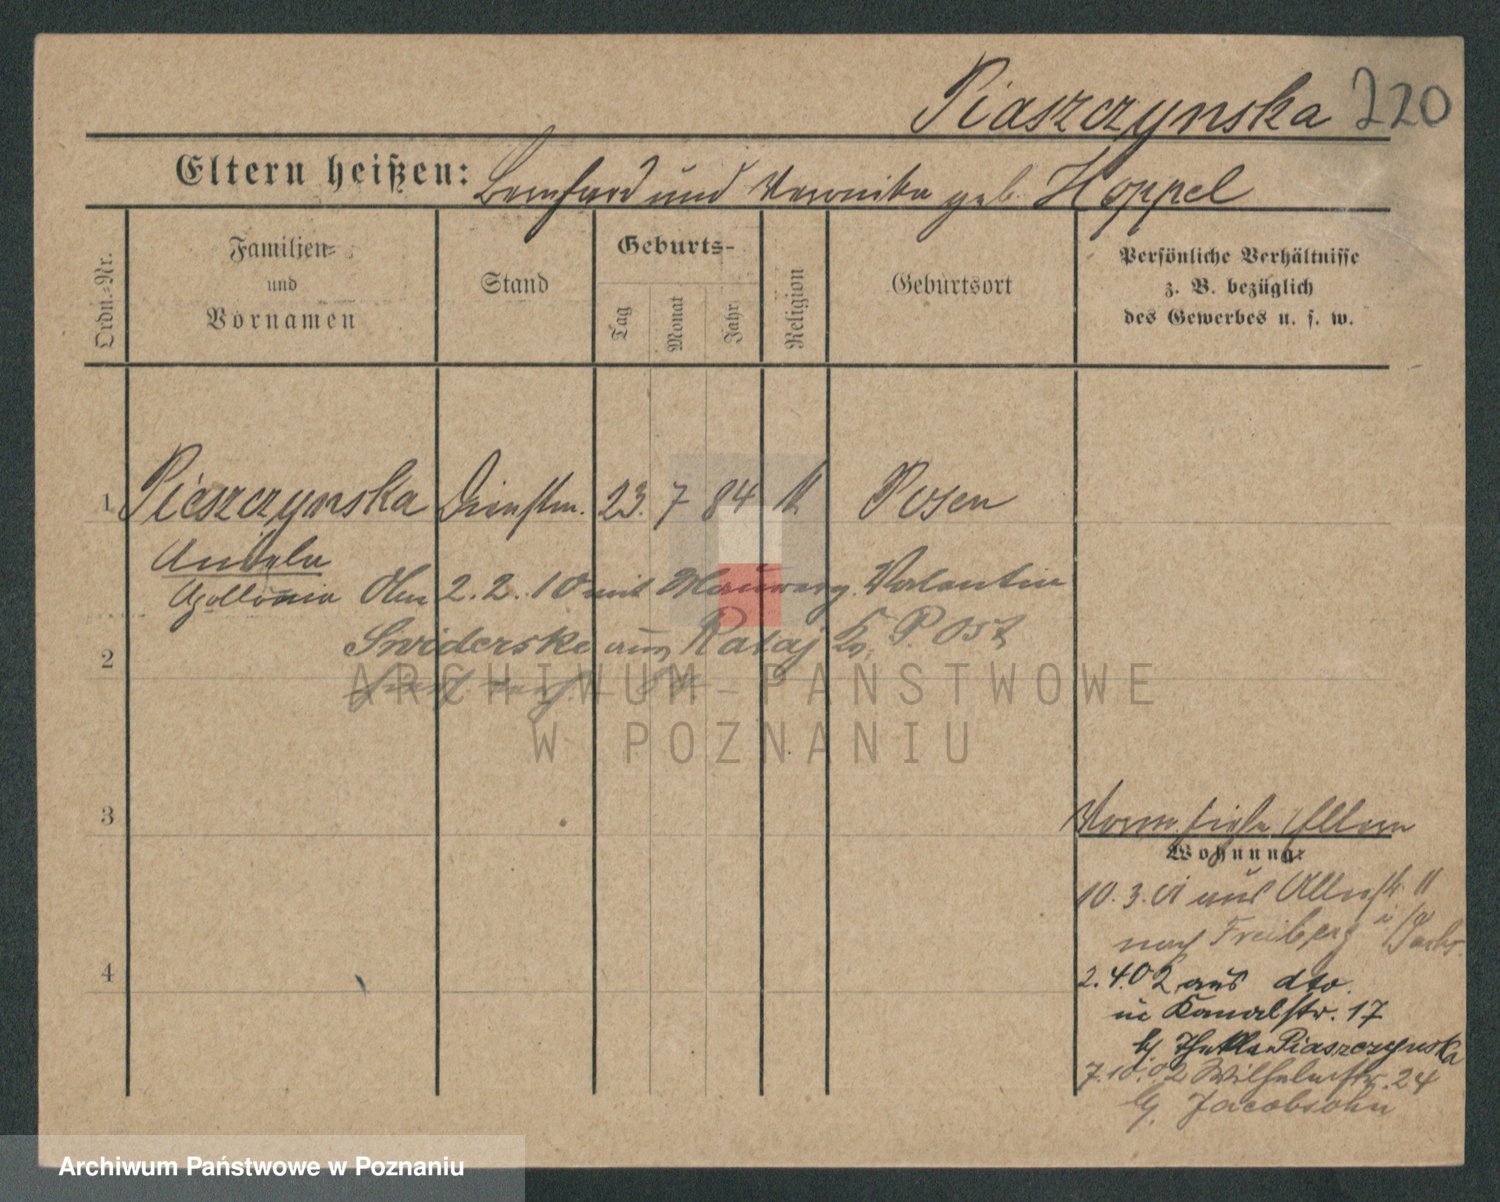 Piaszczynska 220
Eltern heißen: Bernhard und Veronika geb. Hoppel
Ordn.-Nr.
Familien-
und
Vornamen
Stand
Geburts-
Tag
Monat
Jahr
Religion
Geburtsort
Persönliche Verhältnisse
z. B. bezüglich
des Gewerbes u. s. w.
1 Piaszczynska Dienstm. 23. 7 84 k Posen
Aniela
Apollonia
Am 2. 2. 10 mit Valentin
Swiderski aus Rataj Kr. P. Ost
2
ARCHIWUM PAŃSTWOWE
W POZNANIU
3
Vorm. siehe Eltern
Wohnung:
10. 3. 01 aus 11
nach Freiberg i/Sachs.
4
2. 4. 02 aus dto.
in Kanalstr. 17
b/ Thekla Piaszczynska
7. 10. 02 Wilhelmstr. 24
b/ Jacobsohn
Archiwum Państwowe w Poznaniu